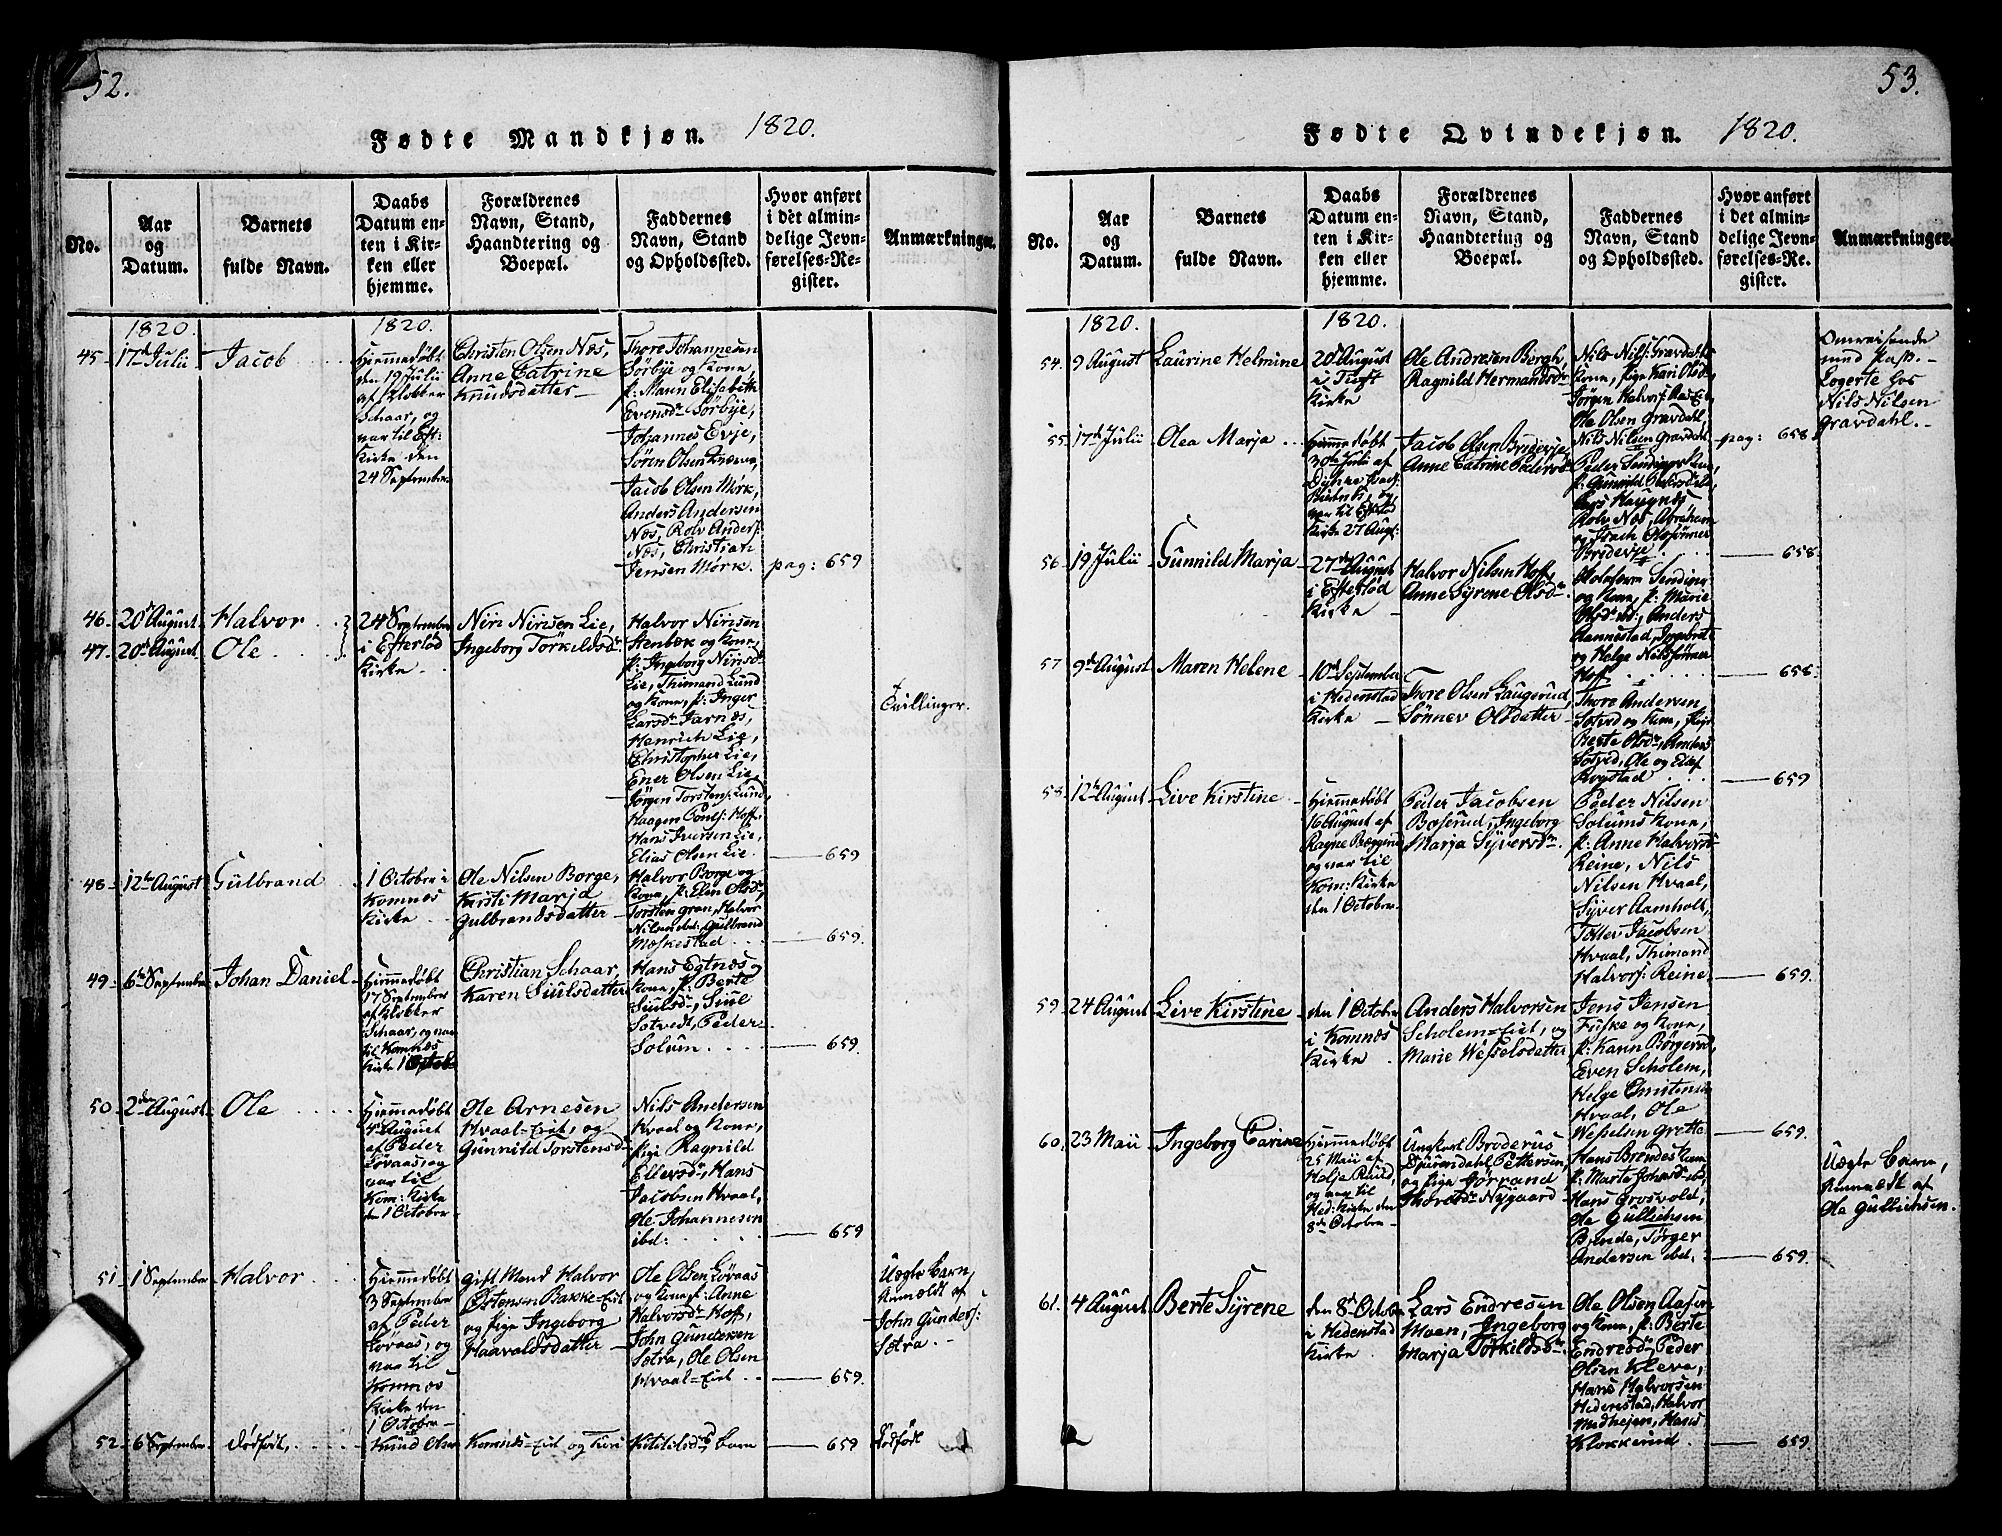 52.
Fødte Mandkjøn. 1820.
No.
Aar
og
Datum.
Barnets
fulde Navn.
Daabs
Datum en-
ten i Kir-
ken eller
hjemme.
Forældrenes
Navn, Stand,
Haandtering og
Boepæl.
Faddernes
Navn, Stand
og Opholdssted.
Hvor anført
i det almin-
delige Jevn-
førelses-Re-
gister.
Anmærkninger.
1820.
1820.
45
17de Julii
Jacob
Hiemmedøbt
den 19 Julii
af Klokker
Schaar, og
var til Eft:
Kirke den
24 September
Christen Olsen Næs,
Anne Catrine
Knudsdatter
Thore Johannesen
Sørbye og Kone,
p: Maren Elisabeth
Evensdr Sørbye,
Johannes Evje,
Søren Olsen
Jacob Olsen Mørk,
Anders Andersen
Næs, Rolv Anders:
Næs, Christian
Jensen Mørk.
pag: 659
46
20de August
Halvor
47
20de August
Ole
24 September
i Eftelød
Kirke
Niri Nirisen Lie,
Ingeborg Torkildsdr
Halvor Nirisen
Stenbæk og Kone,
p: Ingeborg Nirisdr
Lie, Thimand Lund
og Kone, p: Inger
Larsdr Jarnæs,
Henrich Lie,
Christopher Lie,
Ener Olsen Lie,
Jørgen Torstens: Lund,
Haagen Hoff,
Hans Iversen Lie,
Elias Olsen Lie.
659
Tvillinger.
48
12te August
Gulbrand
1 October i
Komnæs
Kirke
Ole Nilsen Borge,
Kirsti Marja
Gulbrandsdatter
Halvor Borge og
Kone, p: Elin Olsdr,
Torsten Gran, Halvor
Nilsen ibd: Gulbrand
Mæskestad
659.
49
6te September
Johan Daniel
Hiemmedøbt
17 September
af Klokker
Schaar, og var
til Komnæs
Kirke 1 Octob
Christian Schaar,
Karen Siulsdatter
Hans Egtnæs og
Kone, p: Berte
Siulsdr, Siul
Sotvedt, Peder
Solum.
659.
50
2den August
Ole
Hiemmedøbt
4de August
af Peder
Løvaas, og
var til
Kom: Kirke
den 1 October
Ole Arnesen
Hvaal-Eiet, og
Gunnild Torstensdr
Nils Andersen
Hvaal og Kone,
pige Ragnild
Ellersdr, Hans
Jacobsen Hvaal,
Ole Johannesen
ibd:
659
51
1 September
Halvor
Hiemmedøbt
3 September
af Peder
Løvaas, og
var til
Komnæs
Kirke den
1 October
gift Mand Halvor
Østensen Bakke-Eiet
og pige Ingeborg
Haavaldsdatter
Ole Olsen Løvaas
og Kone, p: Anne
Halvorsdr Hoff,
John Gundersen
Sætra, Ole Olsen
Hvaal-Eiet
659.
Uægte Barn,
Anmeldt af
John Gunders:
Sætra.
52
6 September
dødfødt,
Knud Olsen Komnæs-Eiet og Turi Kittilsdrs Barn
659
Dødfødt
53.
Fødte Qvindekjøn. 1820.
No.
Aar
og
Datum.
Barnets
fulde Navn.
Daabs
Datum en-
ten i Kir-
ken eller
hjemme.
Forældrenes
Navn, Stand,
Haandtering og
Boepæl.
Faddernes
Navn, Stand
og Opholdssted.
Hvor anført
i det almin-
delige Jevn-
førelses-Re-
gister.
Anmærkninger.
1820.
1820.
54.
9 August
Laurine Helmine
20de August
i Tuft
Kirke
Ole Andresen Bergh,
Ragnild Hermandsdr
Nils Nils: Gravdahls
Kone, pige Kari Olsdr,
Jørgen Halvors:
Ole Olsen Gravdahl,
Nils Nilsen Gravdahl
Omreisende
med Pass.
Logerte hos
Nils Nilsen
Gravdahl.
55
17de Julii
Olea Marja
Hiemmedøbt
30te Julii af
var til Eftelød
Kirke 27 Aug:
Jacob Olsen Bruderje,
Anne Catrine Pedersdr
Peder Sending Kone,
p: Gunnild
Lars Haugnæs
Rolv Næs, Abraham
og Isach Olssønner
Bruderje
pag: 658
56
19 Julii
Gunnild Marja
27de August
i Eftelød
Kirke
Halvor Nilsen Hoff,
Anne Syrene Olsdr
Sending
og Kone, p: Marie
Olsdr ibd:, Anders
Aannestad, Ingebret
og Helge Nilssønner
Hof
658.
57
9de August
Maren Helene
10de September
i Hedenstad
Kirke
Thore Olsen Laugerud,
Sønnev Olsdatter
Thore Andersen
Sotved og Kone, pige
Berte Olsdr, Anders
Sotved, Ole og
Rygstad
658.
58
12te August
Live Kirstine
Hiemmedøbt
16 August af
Ragne
og var til
Kom: Kirke
den 1 October
Peder Jacobsen
Boserud, Ingeborg
Marja Syversdr
Peder Nilsen
Solums Kone,
p: Anne Halvorsdr
Reine, Nils
Nilsen Hvaal,
Syver Aamholt,
Toller Jacobsen
Hvaal, Thimand
Halvors: Reine,
659
659.
59
24 August
Live Kirstine
den 1 October
i Komnæs
Kirke
Anders Halvorsen
Scholem-Eiet, og
Marie Wesselsdatter
Jens Jensen
Fiiske og Kone,
p: Karen Børgerud,
Even Scholem,
Helge Christensen
Hvaal, Ole
Wesselsen Grette
659.
60
23 Maii
Ingeborg Carine
Hiemmedøbt
25 Maii af
Helje Ruud,
og var til
Hed: Kirke den
8de October
Ungkarl Broderus
Djurendahl Pettersen,
og pige Jørrand
Thoresdr Nygaard
Hans Brendes Kone
p: Marte Johansdr ibd,
Hans Grosvold,
Ole Gullichsen
Brende, Tørger
Andersen ibd.
659.
Uægte Barn,
Anmeldt af
Ole Gullichsen.
61.
4 August
Berte Syrene
den 8de October
i Hedenstad
Kirke.
Lars Endresen
Moen, Ingeborg
Marja Torkildsdr
Ole Olsen Aasen
og Kone, p: Berte
Endresdr, Peder
Olsen Kleve,
Hans Halvorsen
Hedenstad, Halvor
Medhejen, Hans
Klokkerud.
659.